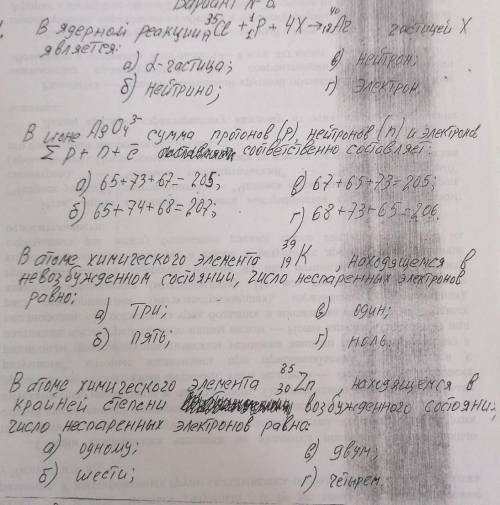 Вариант №
1. В ядерной реакции ³⁵₁₇Cl + ¹₁P + 4X → ⁴⁰₁₈Ar частицей X
является:
а) α-частица; в) нейтрон;
б) нейтрино; г) электрон.
В ионе AsO₄³⁻ сумма протонов (p), нейтронов (n) и электронов
Σ p + n + ē соответственно составляет:
а) 65+73+67=205; в) 67+65+73=205;
б) 65+74+68=207; г) 68+73+65=206.
В атоме химического элемента ³⁹₁₉K, находящемся в
невозбужденном состоянии, число неспаренных электронов
равно:
а) три; в) один;
б) пять; г) ноль.
В атоме химического элемента ⁸⁵₃₀Zn, находящемся в
крайней степени возбужденного состояния,
число неспаренных электронов равна:
а) одному; в) двум;
б) шести; г) четырем.